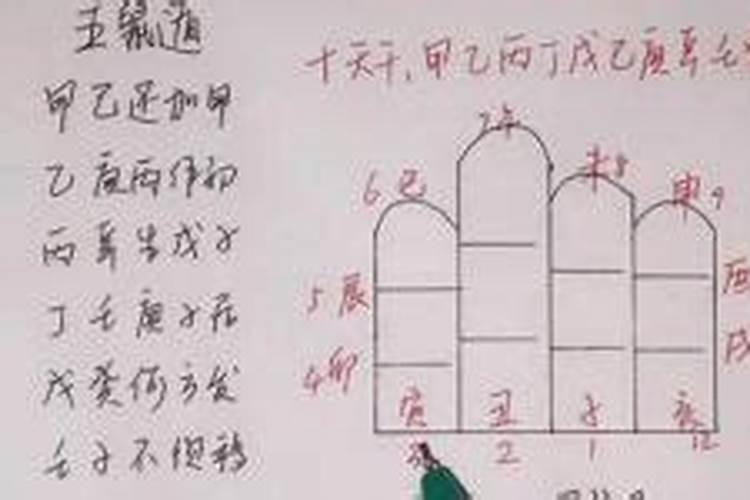 五鼠遁
甲己还加甲
乙庚丙作初
丙辛生戊子
丁壬庚子居
戊癸何方发
壬子不须移
十天干,甲乙丙丁戊己庚辛壬
7午
6巳
未8
申9
5辰
酉
4卯
戌
寅
丑
子
亥
3
2
1
12